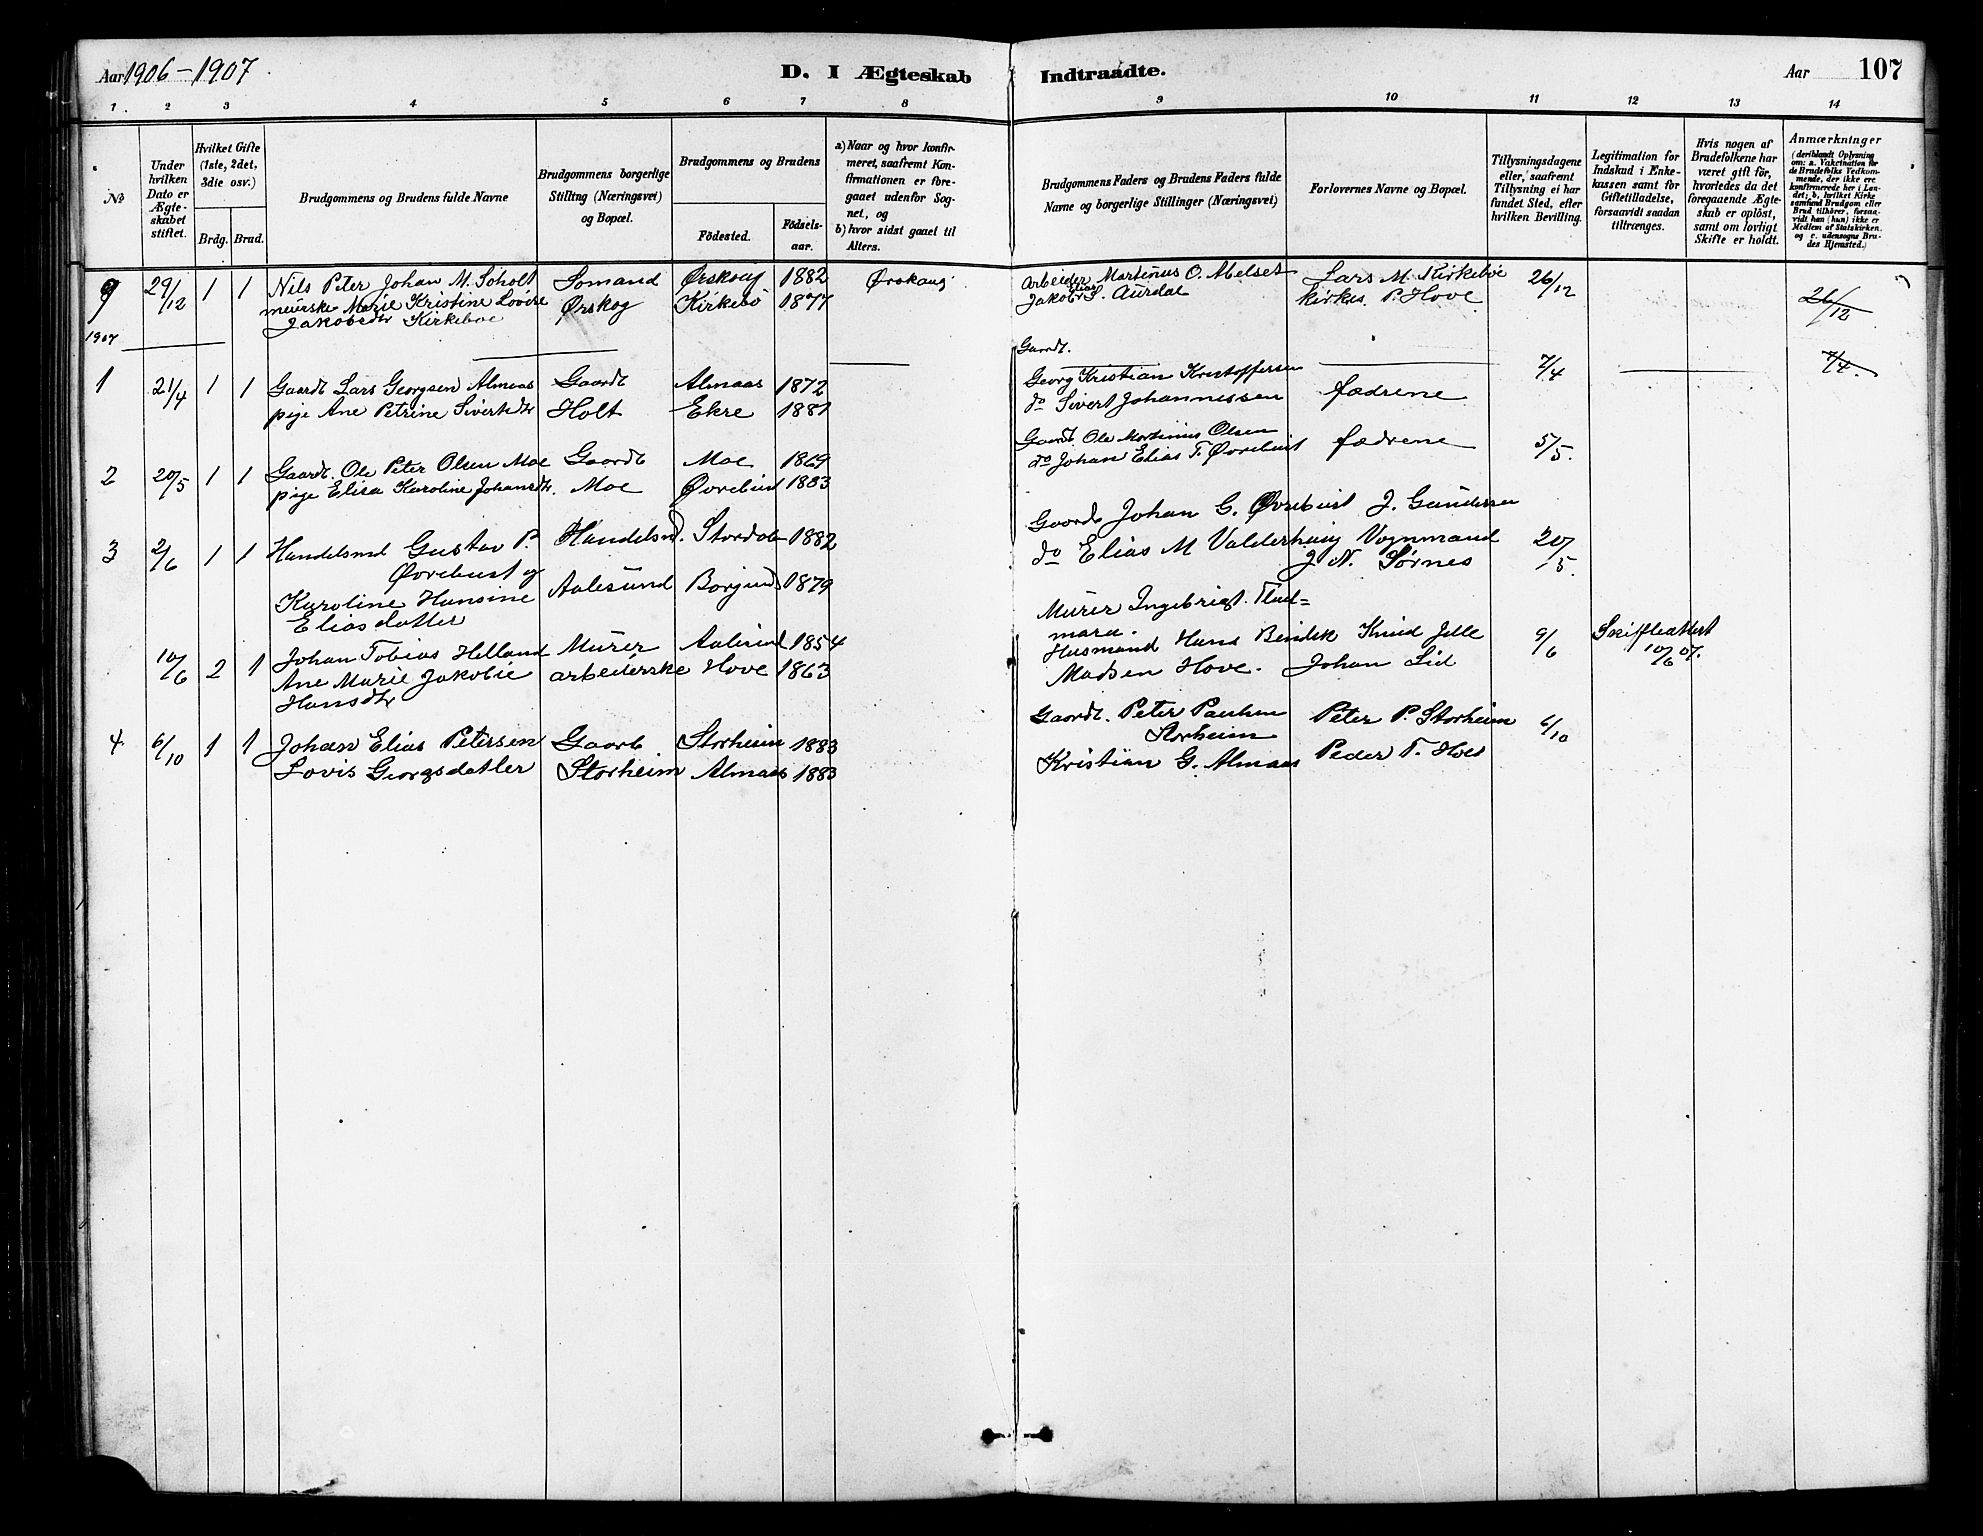 Aar 1906-1907.
D. I Ægteskab Indtraadte.
Aar 107
1. 2 3 4 5 6 7 8 9 10 11 12 13 14
No
Under hvilken Dato er Ægteskabet stiftet.
Hvilket Gifte (1ste, 2det, 3die osv.)
Brdg. Brud.
Brudgommens og Brudens fulde Navne
Brudgommens borgerlige Stilling (Næringsvei) og Bopæl.
Brudgommens og Brudens
Födested.
Födselsaar.
a) Naar og hvor konfirmeret, saafremt Konfirmationen er foregaaet udenfor Sognet, og
b) hvor sidst gaaet til Alters.
Brudgommens Faders og Brudens Faders fulde Navne og borgerlige Stillinger (Næringsvei)
Forlovernes Navne og Bopæl.
Tillysningsdagene eller, saafremt Tillysning ei har fundet Sted, efter hvilken Bevilling.
Legitimation for Indskud i Enkekassen samt for Giftetilladelse, forsaavidt saadan tiltrænges.
Hvis nogen af Brudefolkene har været gift før, hvorledes da det foregaaende Ægteskab er oplöst, samt om lovligt Skifte er holdt.
Anmærkninger
(deriblandt Oplysning om: a. Vakcination för de Brudefolks Vedkommende, der ikke ere konfirmerede her i Landet; b. hvilket Kirkesamfund Brudgom eller Brud tilhörer, forsaavidt han (hun) ikke er Medlem af Statskirken, og c. udensogns Brudes Hjemsted.)
9 29/12 1 1 Nils Peter Johan M. Soholt Somand Ørskoug 1882 Ørskaug Arbeider Martinus O. Abelset Lars M. Kirkeboe 26/12
meierske Marie Kristine Lovise Ørskog Kirkebö 1877 Jakob Elias S. Aurdal kirkes. P. Hove 26/12
Jakobsdtr Kirkeboe
1907
Gaardt.
1 21/4 1 1 Gaardt Lars Georgsen Almaas Gaardt Almaas 1872 Georg Kristian Kristoffersen fædrene 7/4 7/4.
pige Ane Petrine Sivertsdtr Holt Ekre 1881 do Sivert Johannessen
2 20/5 1 1 Gaardt. Ole Peter Olsen Moe Gaardt Moe 1869 Gaardt. Ole Martinus Olsen fædrene 5/5.
pige Elisa Karoline Johansdtr. Moe Øvrebust 1883 do Johan Elias T. Øvrebust
3 2/6 1 1 Handelsmd Gustav P. Handelsmd. Stordal 1882 Gaardb Johan G. Øvrebust J. Gundersen
Øvrebust og do Elias M Valderhaug Vognmand 20/5.
Karoline Hansine Aalesund Borgund 1879 J. N. Sørnes
Eliasdatter
10/6 2 1 Johan Tobias Helland Murer Aalesund 1854 Murer Ingebrigt
Ane Marie Jakobie arbederske Hove 1863 Husmand Hans Bendik Knud Jelle 9/6 Skifteattest 10/6 07.
Hansdtr Madsen Hove. Johan Lid
4 6/10 1 1 Johan Elias Petersen Gaarb Storheim 1883 Gaardt. Peter Paulsen Peter P. Storheim 6/10
Storheim
Lovis Georgsdatter Storheim Almaas 1883 Kristian G. Almaas Peder T. Holt